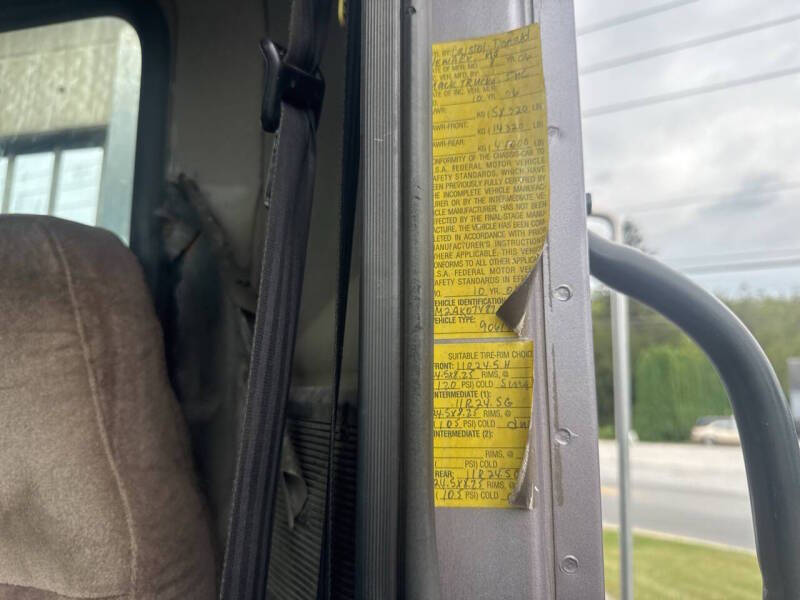 BY Cristol, Donald
YR. 06
VEH. MFD. BY:
Mack Trucks, Inc
DATE OF INC. VEH. MFR.
10 YR. 06
KG (58320 LB)
WR-FRONT:
KG (14320 LB)
WR-REAR:
KG ( LB)
ONFORMITY OF THE CHASSIS-CAB TO
.S.A. FEDERAL MOTOR VEHICLE
AFETY STANDARDS, WHICH HAVE
EEN PREVIOUSLY FULLY CERTIFIED BY
HE INCOMPLETE VEHICLE MANUFAC-
URER OR BY THE INTERMEDIATE VE-
ICLE MANUFACTURER, HAS NOT BEEN
FFECTED BY THE FINAL-STAGE MANU-
ACTURE. THE VEHICLE HAS BEEN COM-
LETED IN ACCORDANCE WITH PRIOR
ANUFACTURER'S INSTRUCTION
HERE APPLICABLE. THIS VEHI
ONFORMS TO ALL OTHER APPLIC
.S.A. FEDERAL MOTOR VEH
AFETY STANDARDS IN EFF
O. 10 YR. 0
VEHICLE IDENTIFICATION
M2AK07Y87
VEHICLE TYPE:
SUITABLE TIRE-RIM CHOIC
FRONT: 11R24.5H
24.5X8.25 RIMS, @
(120 PSI) COLD
INTERMEDIATE (1):
11R24.5G
24.5X8.25 RIMS, @
(105 PSI) COLD
INTERMEDIATE (2):
RIMS, @
PSI) COLD
REAR: 11R24.5G
24.5X8.25 RIMS, @
(105 PSI) COLD